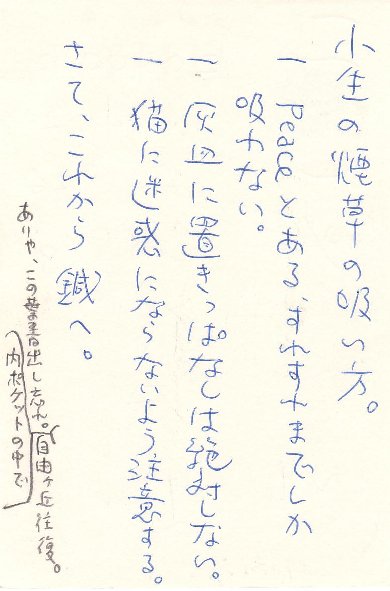 小生の煙草の吸い方。
一 Peaceとある、すれすれまでしか
吸わない。
一 灰皿に置きっぱなしは絶対しない。
一 猫に迷惑にならないよう注意する。
さて、これから鍼へ。
ありや、この葉書出し忘れ。自由ヶ丘往復。
内ポケットの中で